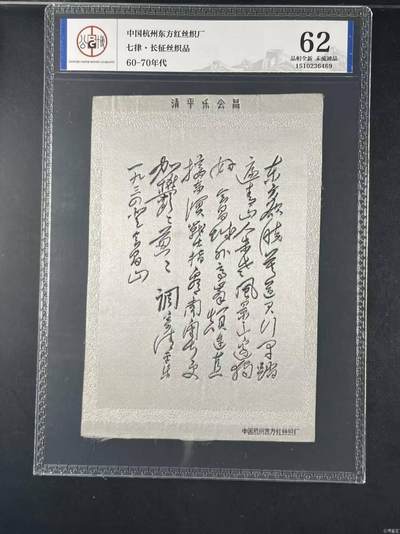 中国杭州东方红丝织厂
七律·长征丝织品
60-70年代
62
品相全新 未流通品
1510236469
清平乐会昌
东方欲晓莫道君行早踏
遍青山人未老风景这边独
好 会昌城外高峰颠连直
接东溟战士指看南粤更
加郁々葱々 调寄清平乐
一九三四登会昌山
中国杭州东方红丝织厂